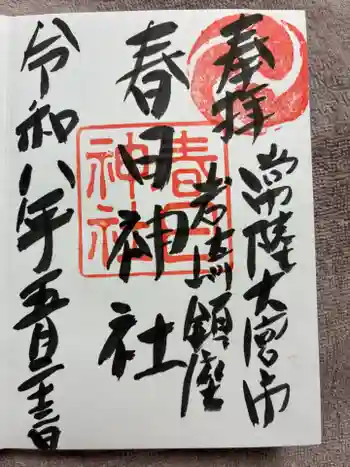 奉拝
常陸大宮市
岩崎鎮座
春日神社
春日神社
令和八年五月二十三日